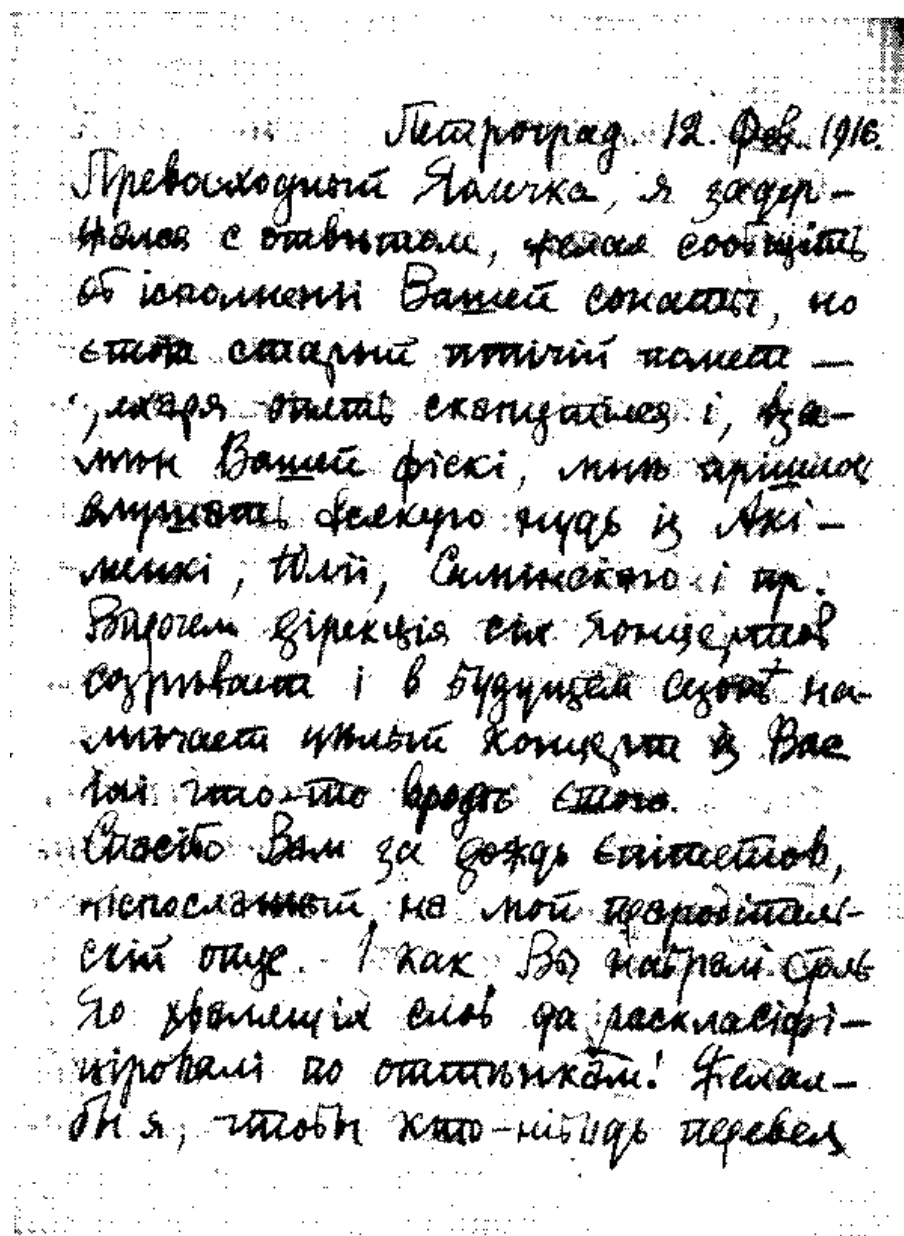 Петроград. 12. Фев. 1916.
Превосходный Яничка, я задер-
жался с отвѣтом, желая сообщить
об ісполненіі Вашей сонаты, но
єтот старый птічій помет —
скандаілся і, вза-
мѣн Вашей фіскі, мнѣ прішлось
слушать всякую нудь із Акі-
менкі, Юліі, Самінского і пр.
Впрочем дірекція сіх концертов
созрѣвает і в будущем сезонѣ на-
мѣчает цѣлый концерт із Вас
ілі что-то вродѣ єтого.
Спасібо Вам за дождь єпітетов,
ніспосланный на мой прародітель-
скій опус. І как Вы набралі столь-
ко хвалящіх слов да расклассіфі-
ціровалі по оттѣнкам! Желал-
бы я, чтобы кто-нібудь перевел